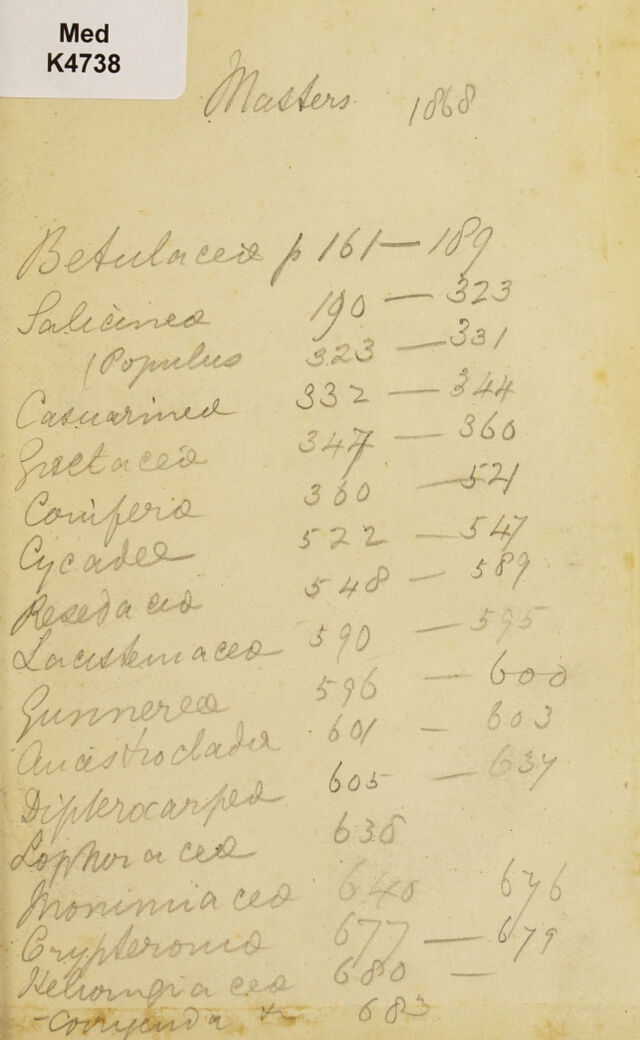 Med
K4738
Masters 1868
Betulaceæ p 161 — 189
Salicineæ 190 — 323
(Populus 323 — 331
Casuarineæ 332 — 344
Gnetaceæ 347 — 360
Coniferæ 360 — 521
Cycadeæ 522 — 547
Resedaceæ 548 — 589
Lacistemaceæ 590 — 595
Gunnereæ 596 — 600
Ancistrocladeæ 601 — 603
Dipterocarpeæ 605 — 637
Lophiraceæ 638
Monimiaceæ 640 676
Crypteroniæ 677 — 679
Helwingiaceæ 680 —
- Corrigenda 683